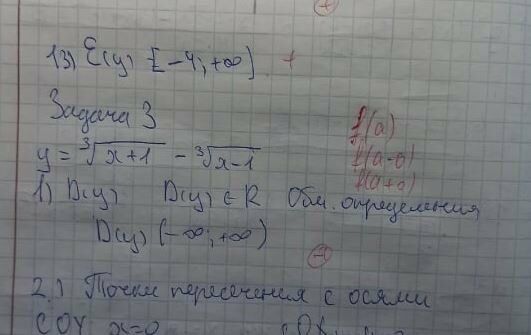 13) E(y) [-4; +∞] +
Задача 3
y = ∛x+1 - ∛x-1
f(a)
f(a-0)
f(a+0)
1) D(y) D(y) ∈ R Обл. определения
D(y) (-∞; +∞)
2.) Точки пересечения с осями
COY x=0